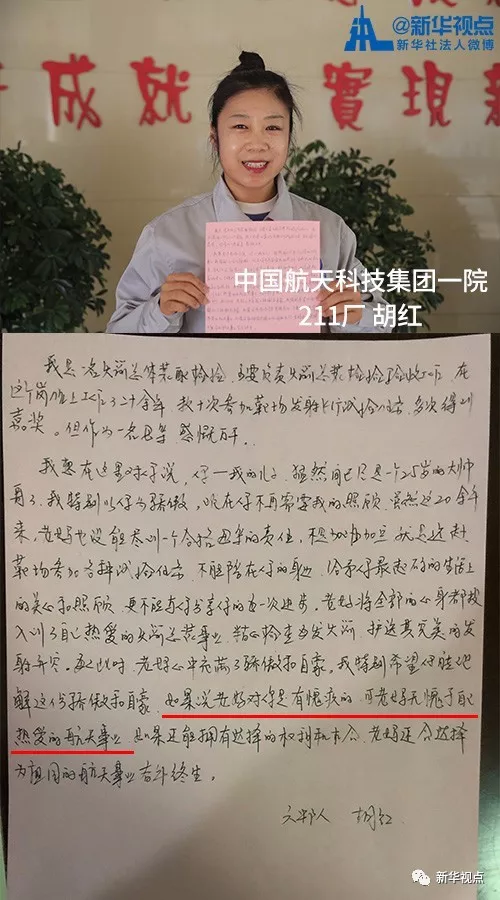 @新华视点
新华社法人微博
成就 實現新
中国航天科技集团一院
211厂 胡红
我是一名火箭总体装配检验,主要负责火箭总装检验验收工作,在
这个岗位上工作了二十余年,数十次参加靶场发射飞行试验任务,多次得到
嘉奖。但作为一名母亲,感慨万千。
我想在这里对你说,仔—我的儿子,猛然间已尽是一个25岁的大帅
哥了,我特别以你为骄傲,现在你不再需要我的照顾,虽然这20余年
来,老妈也没能尽到一个合格母亲的责任,不是加班加点就是远赴
靶场参加各种试验任务,不能陪在你的身边,给予你最起码的生活上
的关心和照顾,更不能与你分享你的每一次进步。老妈将全部的心身都投
入到了自己热爱的火箭总装事业,精心检查每发火箭,护送其完美的发
射升空。每到此时,老妈心中充满了骄傲和自豪。我特别希望你能理
解这份骄傲和自豪,如果说老妈对你是有愧疚的,可老妈无愧于自己
热爱的航天事业,如果还能拥有选择的权利和机会,老妈还会选择
为祖国的航天事业奋斗终生。
六郎人 胡红
新华视点